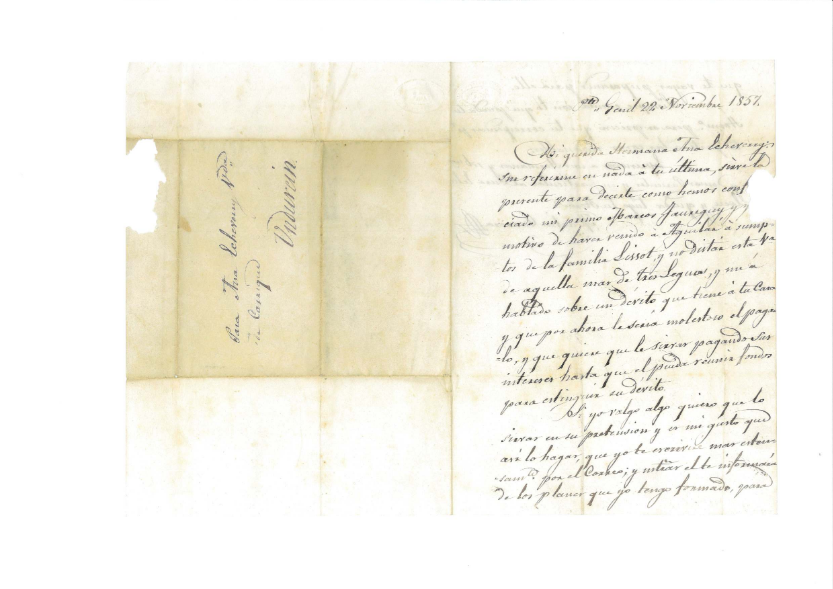 Para Ana Echeverry Vda
de Casique
Vidurain.
Pte Genil 22 Noviembre 1857.
Mi querida Hermana Ana Echeverry:
sin referirme en nada à tu última, sirve la
presente para decirte como hemos conf
ciado mi primo Marcos Jauregui, y
motivo de haver venido à Aguilar à sump-
tos de la familia Lissot, y no distar esta Va
de aquella mas de tres Leguas, y me à
hablado sobre un dévito que tiene à tu Casa
y que por ahora le seria molestoso el pagar
-lo, y que quiere que le sirvas pagando sus
intereses hasta que el pueda reunir fondos
para estinguir su dévito.
Si yo valgo algo quiero que lo
sirvas en su pretension y es mi gusto que
asi lo hagas, que yo te escrivire mas estensa-
samte por el Correo; y mas el te informará
de los planes que yo tengo formado, para